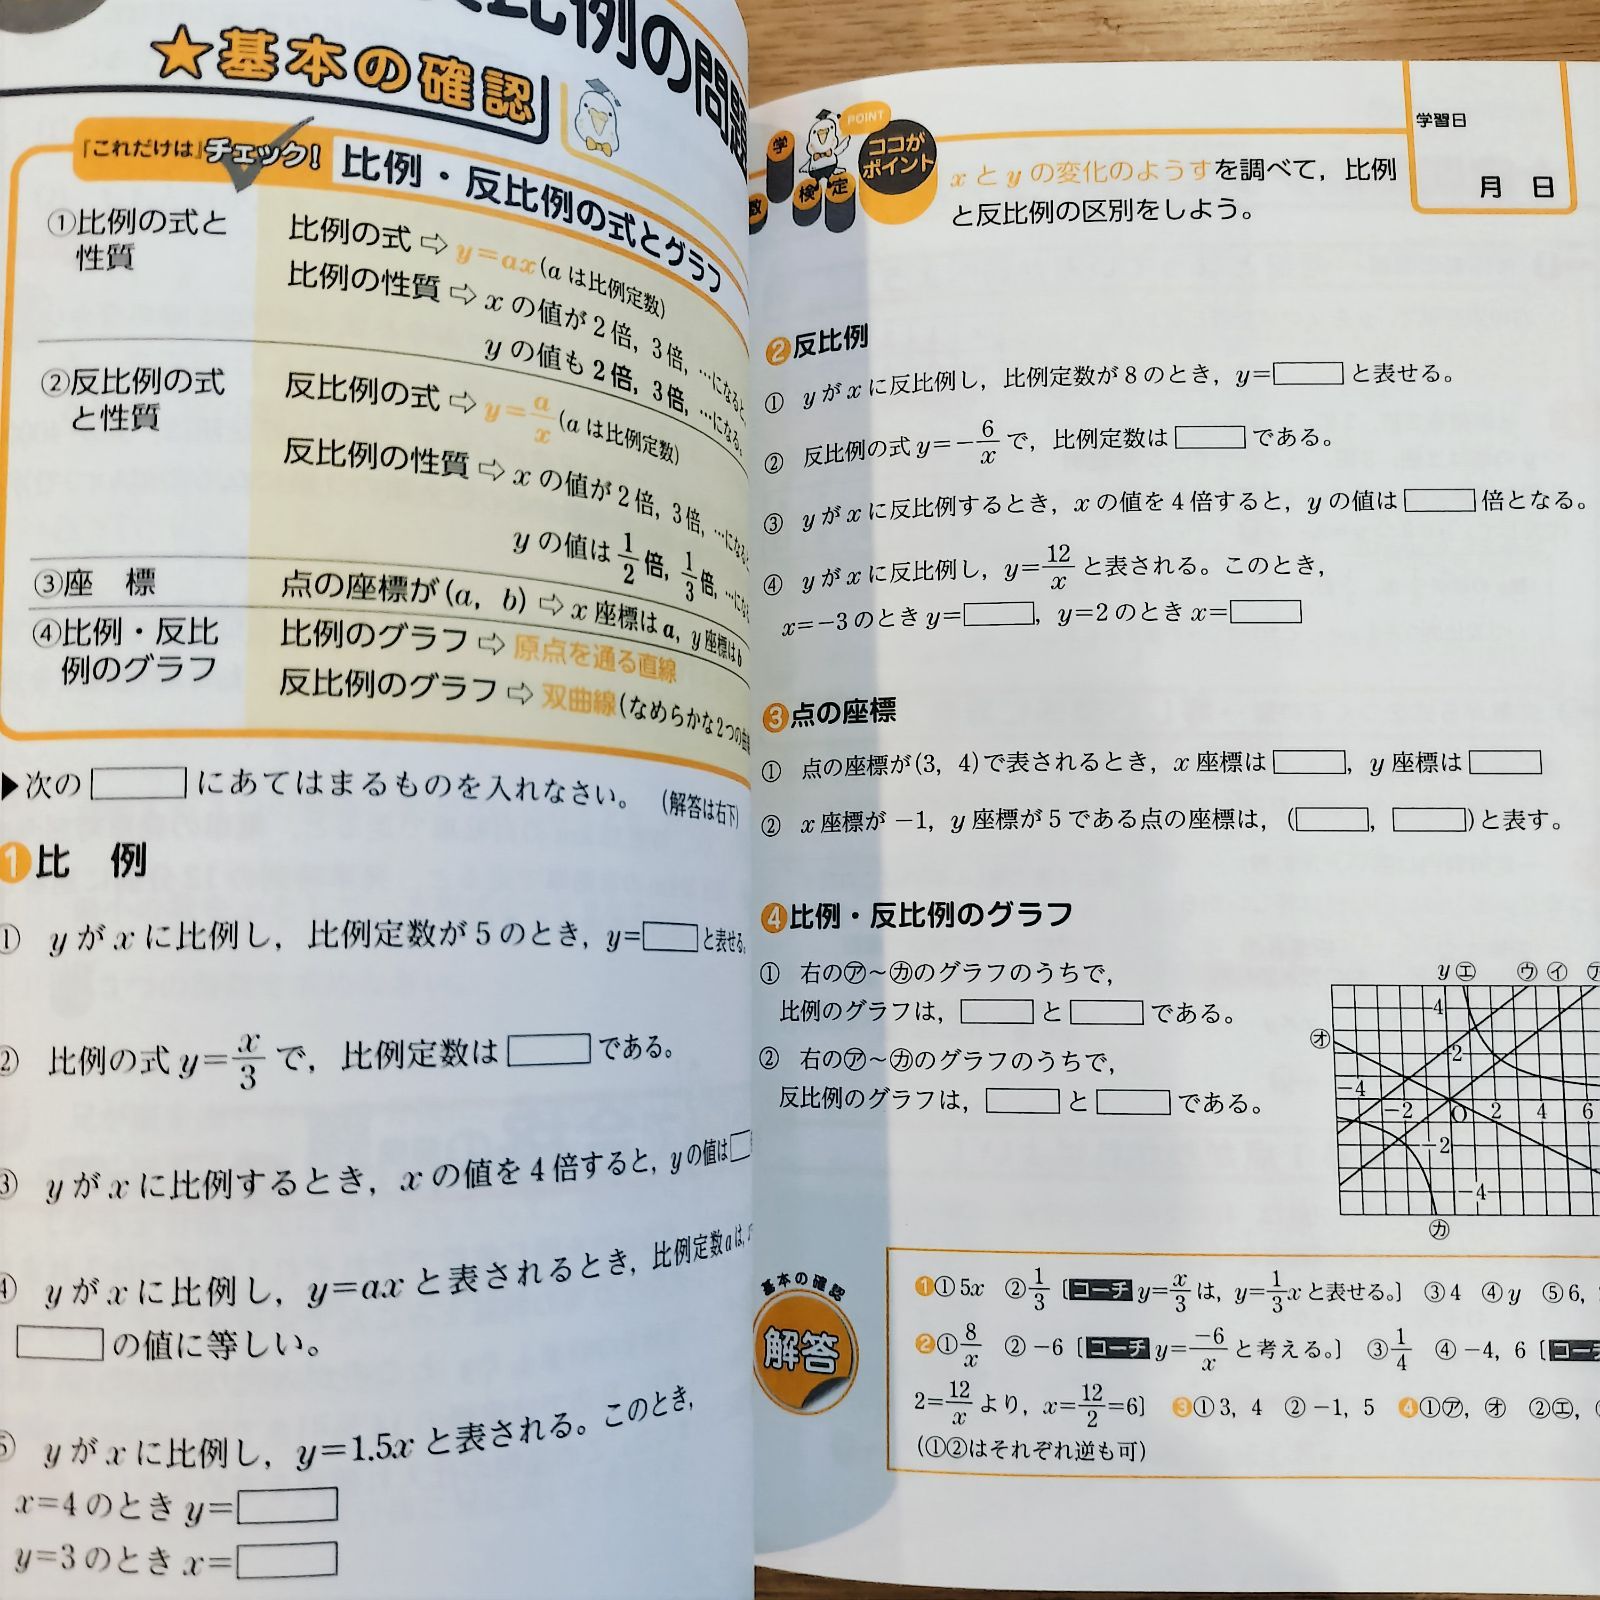 比例の問題
★基本の確認
『これだけは』チェック! 比例・反比例の式とグラフ
①比例の式と
性質
比例の式⇨y=ax(aは比例定数)
比例の性質⇨xの値が2倍, 3倍, …になると,
yの値も2倍, 3倍, …になる。
②反比例の式
と性質
反比例の式⇨y=a/x(aは比例定数)
反比例の性質⇨xの値が2倍, 3倍, …になると
yの値は1/2倍, 1/3倍, …にな
③座 標
点の座標が(a, b)⇨x座標はa, y座標はb
④比例・反比
例のグラフ
比例のグラフ⇨原点を通る直線
反比例のグラフ⇨双曲線(なめらかな2つの曲
▶次の□にあてはまるものを入れなさい。 (解答は右下)
1 比 例
① yがxに比例し, 比例定数が5のとき, y=□と表せる。
② 比例の式y=x/3で, 比例定数は□である。
③ yがxに比例するとき, xの値を4倍すると, yの値は□
④ yがxに比例し, y=axと表されるとき, 比例定数aは,
□の値に等しい。
⑤ yがxに比例し, y=1.5xと表される。このとき,
x=4のときy=□
y=3のときx=□
数 学 検 定
POINT
ココが
ポイント
xとyの変化のようすを調べて, 比例
と反比例の区別をしよう。
学習日
月 日
2 反比例
① yがxに反比例し, 比例定数が8のとき, y=□と表せる。
② 反比例の式y=-6/xで, 比例定数は□である。
③ yがxに反比例するとき, xの値を4倍すると, yの値は□倍となる。
④ yがxに反比例し, y=12/xと表される。このとき,
x=-3のときy=□, y=2のときx=□
3 点の座標
① 点の座標が(3, 4)で表されるとき, x座標は□, y座標は□
② x座標が-1, y座標が5である点の座標は, (□, □)と表す。
4 比例・反比例のグラフ
① 右の㋐~㋕のグラフのうちで,
比例のグラフは, □と□である。
② 右の㋐~㋕のグラフのうちで,
反比例のグラフは, □と□である。
y ㋓ ㋒ ㋑ ㋐
4
㋔
2
-4 -2 O 2 4 6
-2
-4
㋕
基本の確認
解答
1 ①5x ②1/3 [コーチ y=x/3は, y=1/3xと表せる。] ③4 ④y ⑤6,
2 ①8/x ②-6 [コーチ y=-6/xと考える。] ③1/4 ④-4, 6 [コーチ
2=12/xより, x=12/2=6] 3 ①3, 4 ②-1, 5 4 ①㋐, ㋔ ②㋓,
(①②はそれぞれ逆も可)